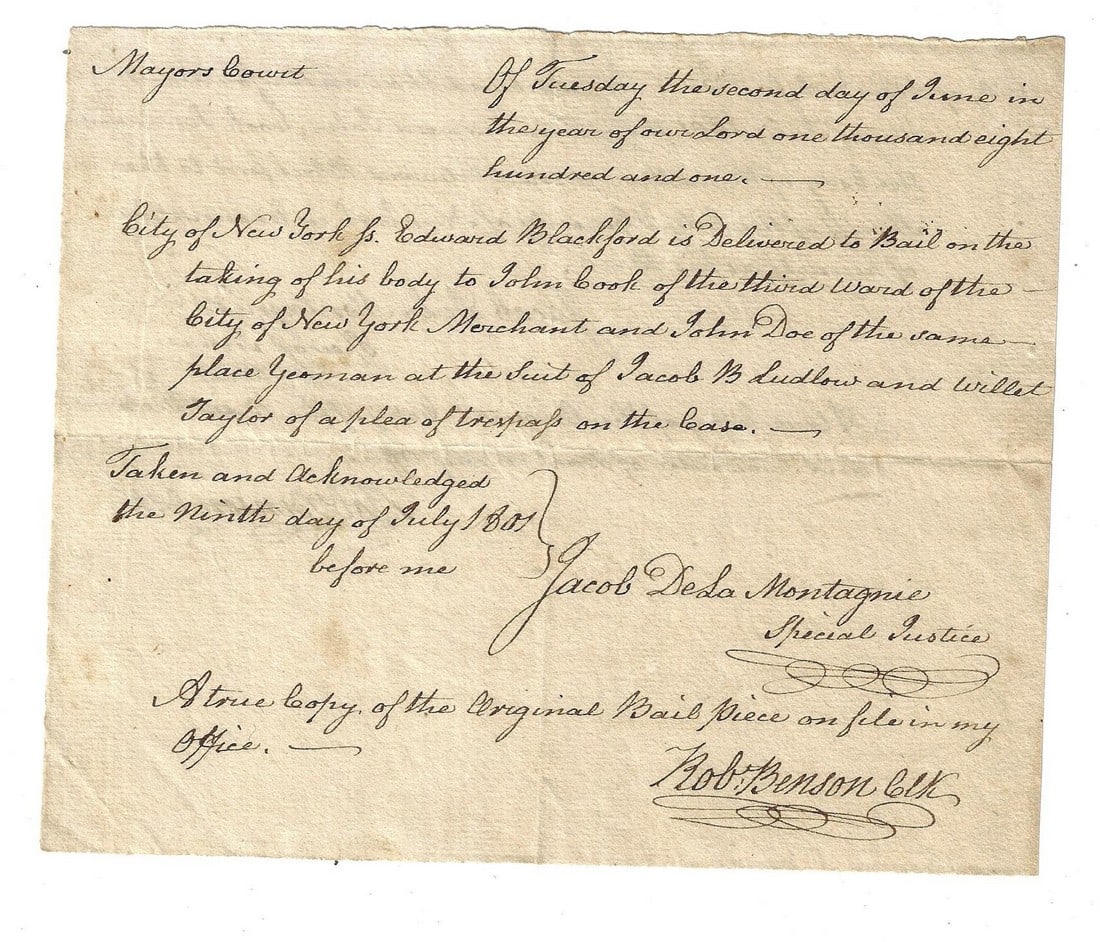 Mayors Court
Of Tuesday the second day of June in
the year of our Lord one thousand eight
hundred and one. —
City of New York ſs. Edward Blackford is Delivered to Bail on the
taking of his body to John Cook of the third Ward of the —
City of New York Merchant and John Doe of the same —
place Yeoman at the Suit of Jacob B Ludlow and Willet
Taylor of a plea of trespaſs on the Case. —
Taken and Acknowledged
the Ninth day of July 1801
before me
Jacob DeLa Montagnie
Special Justice
A true Copy of the Original Bail piece on file in my
Office. —
Robt. Benson Clk